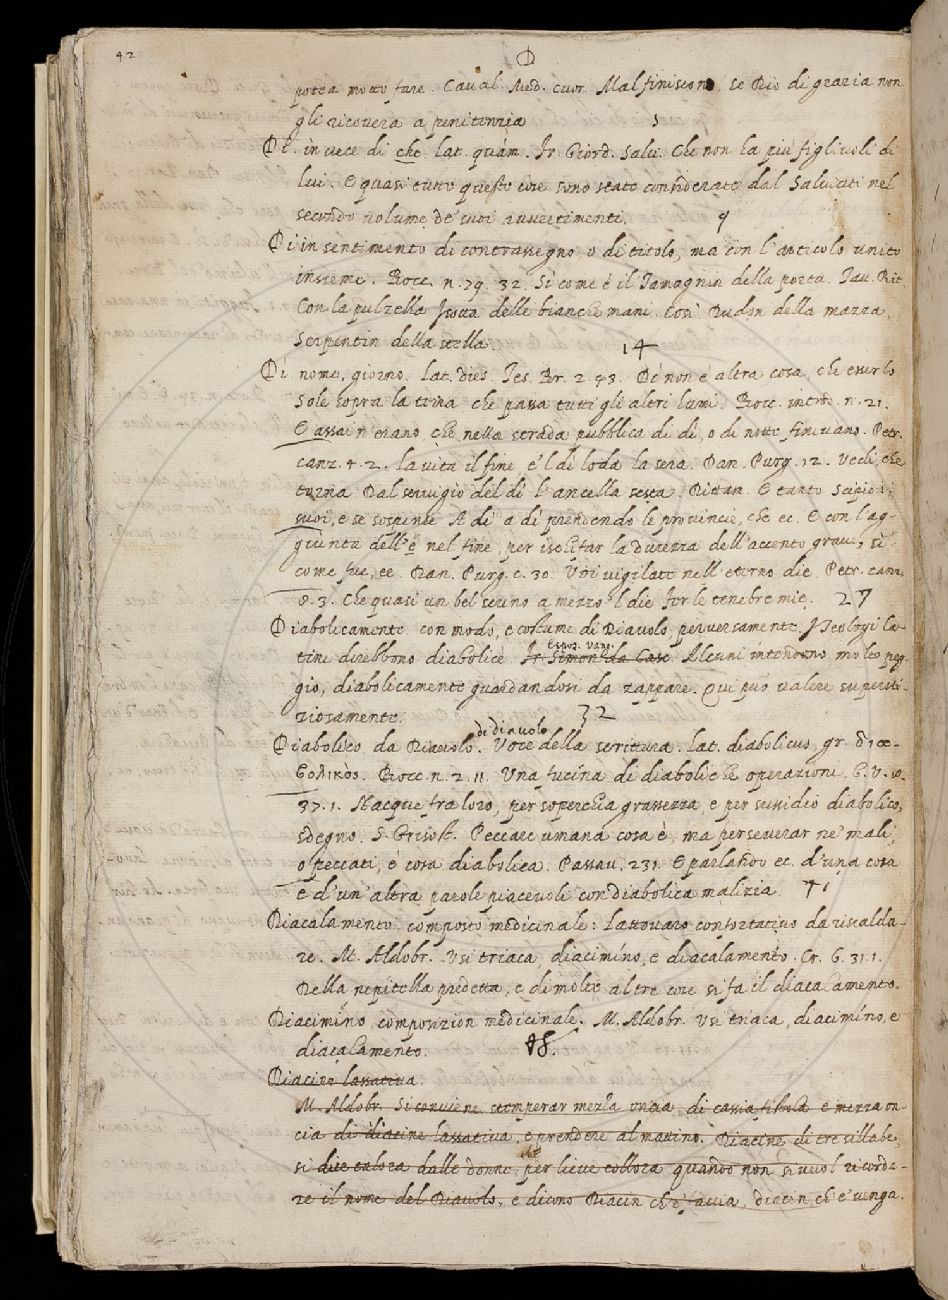 42
D
potea motto fare. Caval. Med. cuor. Mal finiscono, se Dio di grazia non
gli ricovera a penitenzia 5
Di. in vece di che. Lat. quàm. Fr. Giord. Salv. Chi non ha più figliuoli di
lui. E quasi tutte queste cose sono state considerate dal Salviati nel
secondo volume de' suoi avvertimenti. 9
Di in sentimento di contrassegno, o di titolo, ma con l'articolo unito
insieme. Bocc. n. 79. 32. Si come è il Tamagnin della porta. Tav. Rit.
Con la pulzella Isotta delle bianche mani. Così Dudon della mazza,
Serpentin della stella. 14
Di nome, giorno. Lat. dies. Tes. Br. 2. 43. Dì non è altra cosa, che esser lo
Sole sopra la terra che passa tutti gli altri lumi. Bocc. introd. n. 21.
E assai n'erano, che nella strada pubblica di dì, o di notte finivano. Petr.
canz. 4. 2. la vita il fine, e 'l dì loda la sera. Dan. Purg. 12. Vedi, che
torna Dal servigio del dì l'ancella sesta. Dittam. E tanto Scipio i
suoi, e se sospinse A dì a dì prendendo le provincie, che ec. E con l'ag-
giunta dell'e nel fine, per isolifar la durezza dell'accento grave, sì
come fue, ee. Dan. Purg. c. 30. Voi vigilate nell'eterno die. Petr. canz.
8. 3. Che quasi un bel sereno a mezzo 'l die Fer le tenebre mie. 27
Diabolicamente con modo, e costume di Diavolo, perversamente. I Teologi la-
tini direbbono diabolicè. Fr. Simon. da Casc. Espos. Vang. Alcuni intendono molto peg-
gio, diabolicamente guardandosi da zappare. Qui può valere supersti-
ziosamente. 32
Diabolico, da Diavolo. di diavolo Voce della scrittura. Lat. diabolicus, gr. δια-
βολικὸς. Bocc. n. 2. 11. Una fucina di diaboliche operazioni. G. V. 10.
37. 1. Nacque tra loro, per soperchia grassezza, e per sussidio diabolico,
sdegno. S. Grisost. Peccare umana cosa è, ma perseverar ne' mali,
o peccati, è cosa diabolica. Passav. 231. E parlando ec. d'una cosa
e d'un'altra parole piacevoli con diabolica malizia. 41
Diacalamento composto medicinale: Lattovaro confortativo da riscalda-
re. M. Aldobr. Usi triaca, diacimino, e diacalamento. Cr. 6. 31. 1.
Della nepitella predetta, e di molte altre cose si fa il diacalamento.
Diacimino, composizion medicinale. M. Aldobr. Usi triaca, diacimino, e
diacalamento. 48.
Diacine lassativa.
M. Aldobr. Si conviene stemperar mezza oncia di cassia fistola e mezza on-
cia di diacine lassativa, e prendere al mattino. Diacine di tre sillabe,
si dice talora dalle donne, per lieve collora quando non si vuol ricorda-
re il nome del Diavolo, e dicono Diacin ch'e' faccia, diacin, ch'e' venga.